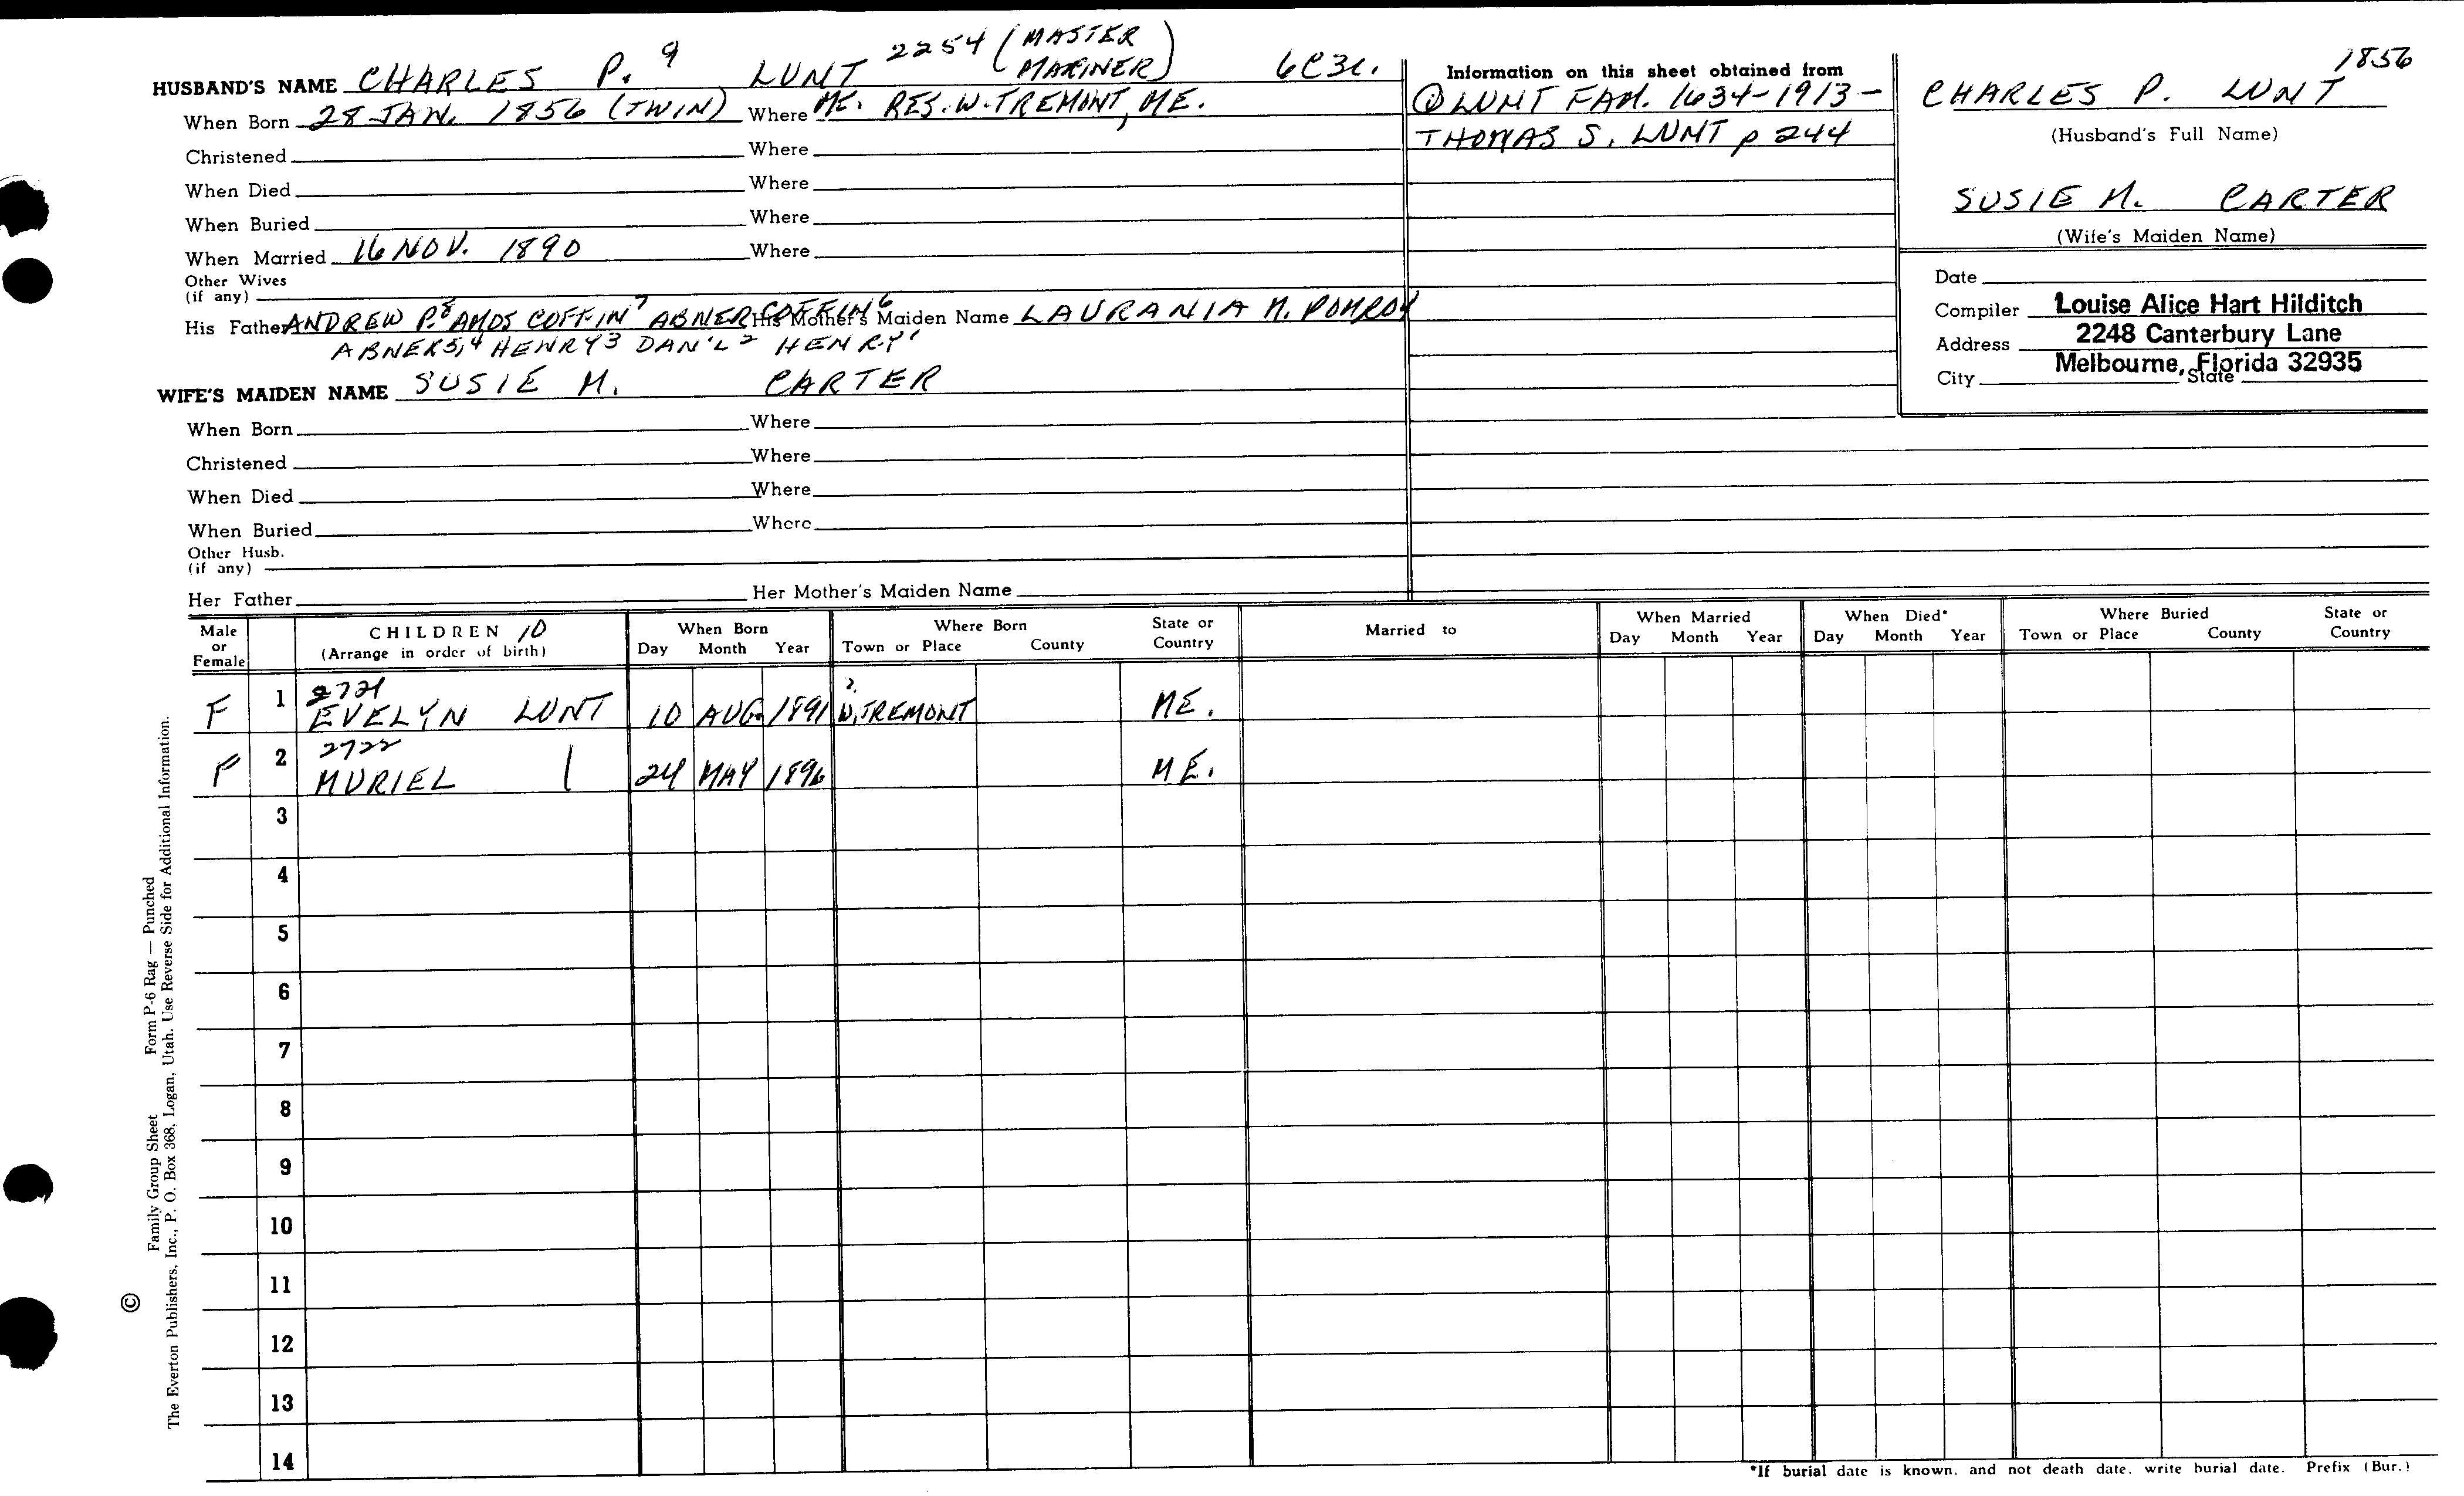 HUSBAND'S NAME CHARLES P. 9 LUNT 2254 (MASTER MARINER) 6C3C.
When Born 28 JAN. 1856 (TWIN) Where ME. RES. W. TREMONT, ME.
Christened Where
When Died Where
When Buried Where
When Married 16 NOV. 1890 Where
Other Wives
(if any)
His Father ANDREW P.8 AMOS COFFIN7 ABNER COFFIN6 His Mother's Maiden Name LAURANIA M. POMROY
ABNER5,4 HENRY3 DAN'L2 HENRY1
WIFE'S MAIDEN NAME SUSIE M. CARTER
When Born Where
Christened Where
When Died Where
When Buried Where
Other Husb.
(if any)
Her Father Her Mother's Maiden Name
Information on this sheet obtained from
LUNT FAM. 1634-1913-
THOMAS S. LUNT p 244
1856
CHARLES P. LUNT
(Husband's Full Name)
SUSIE M. CARTER
(Wife's Maiden Name)
Date
Compiler Louise Alice Hart Hilditch
Address 2248 Canterbury Lane
City Melbourne, Florida 32935 State
Male or Female CHILDREN 10 (Arrange in order of birth) When Born Day Month Year Where Born Town or Place County State or Country Married to When Married Day Month Year When Died* Day Month Year Where Buried Town or Place County State or Country
F 1 2721 EVELYN LUNT 10 AUG. 1891 ? W. TREMONT ME.
F 2 2722 MURIEL | 24 MAY 1896 ME.
3
4
5
6
7
8
9
10
11
12
13
14
*If burial date is known, and not death date, write burial date. Prefix (Bur.)
© Family Group Sheet Form P-6 Rag — Punched
The Everton Publishers, Inc., P. O. Box 368, Logan, Utah. Use Reverse Side for Additional Information.